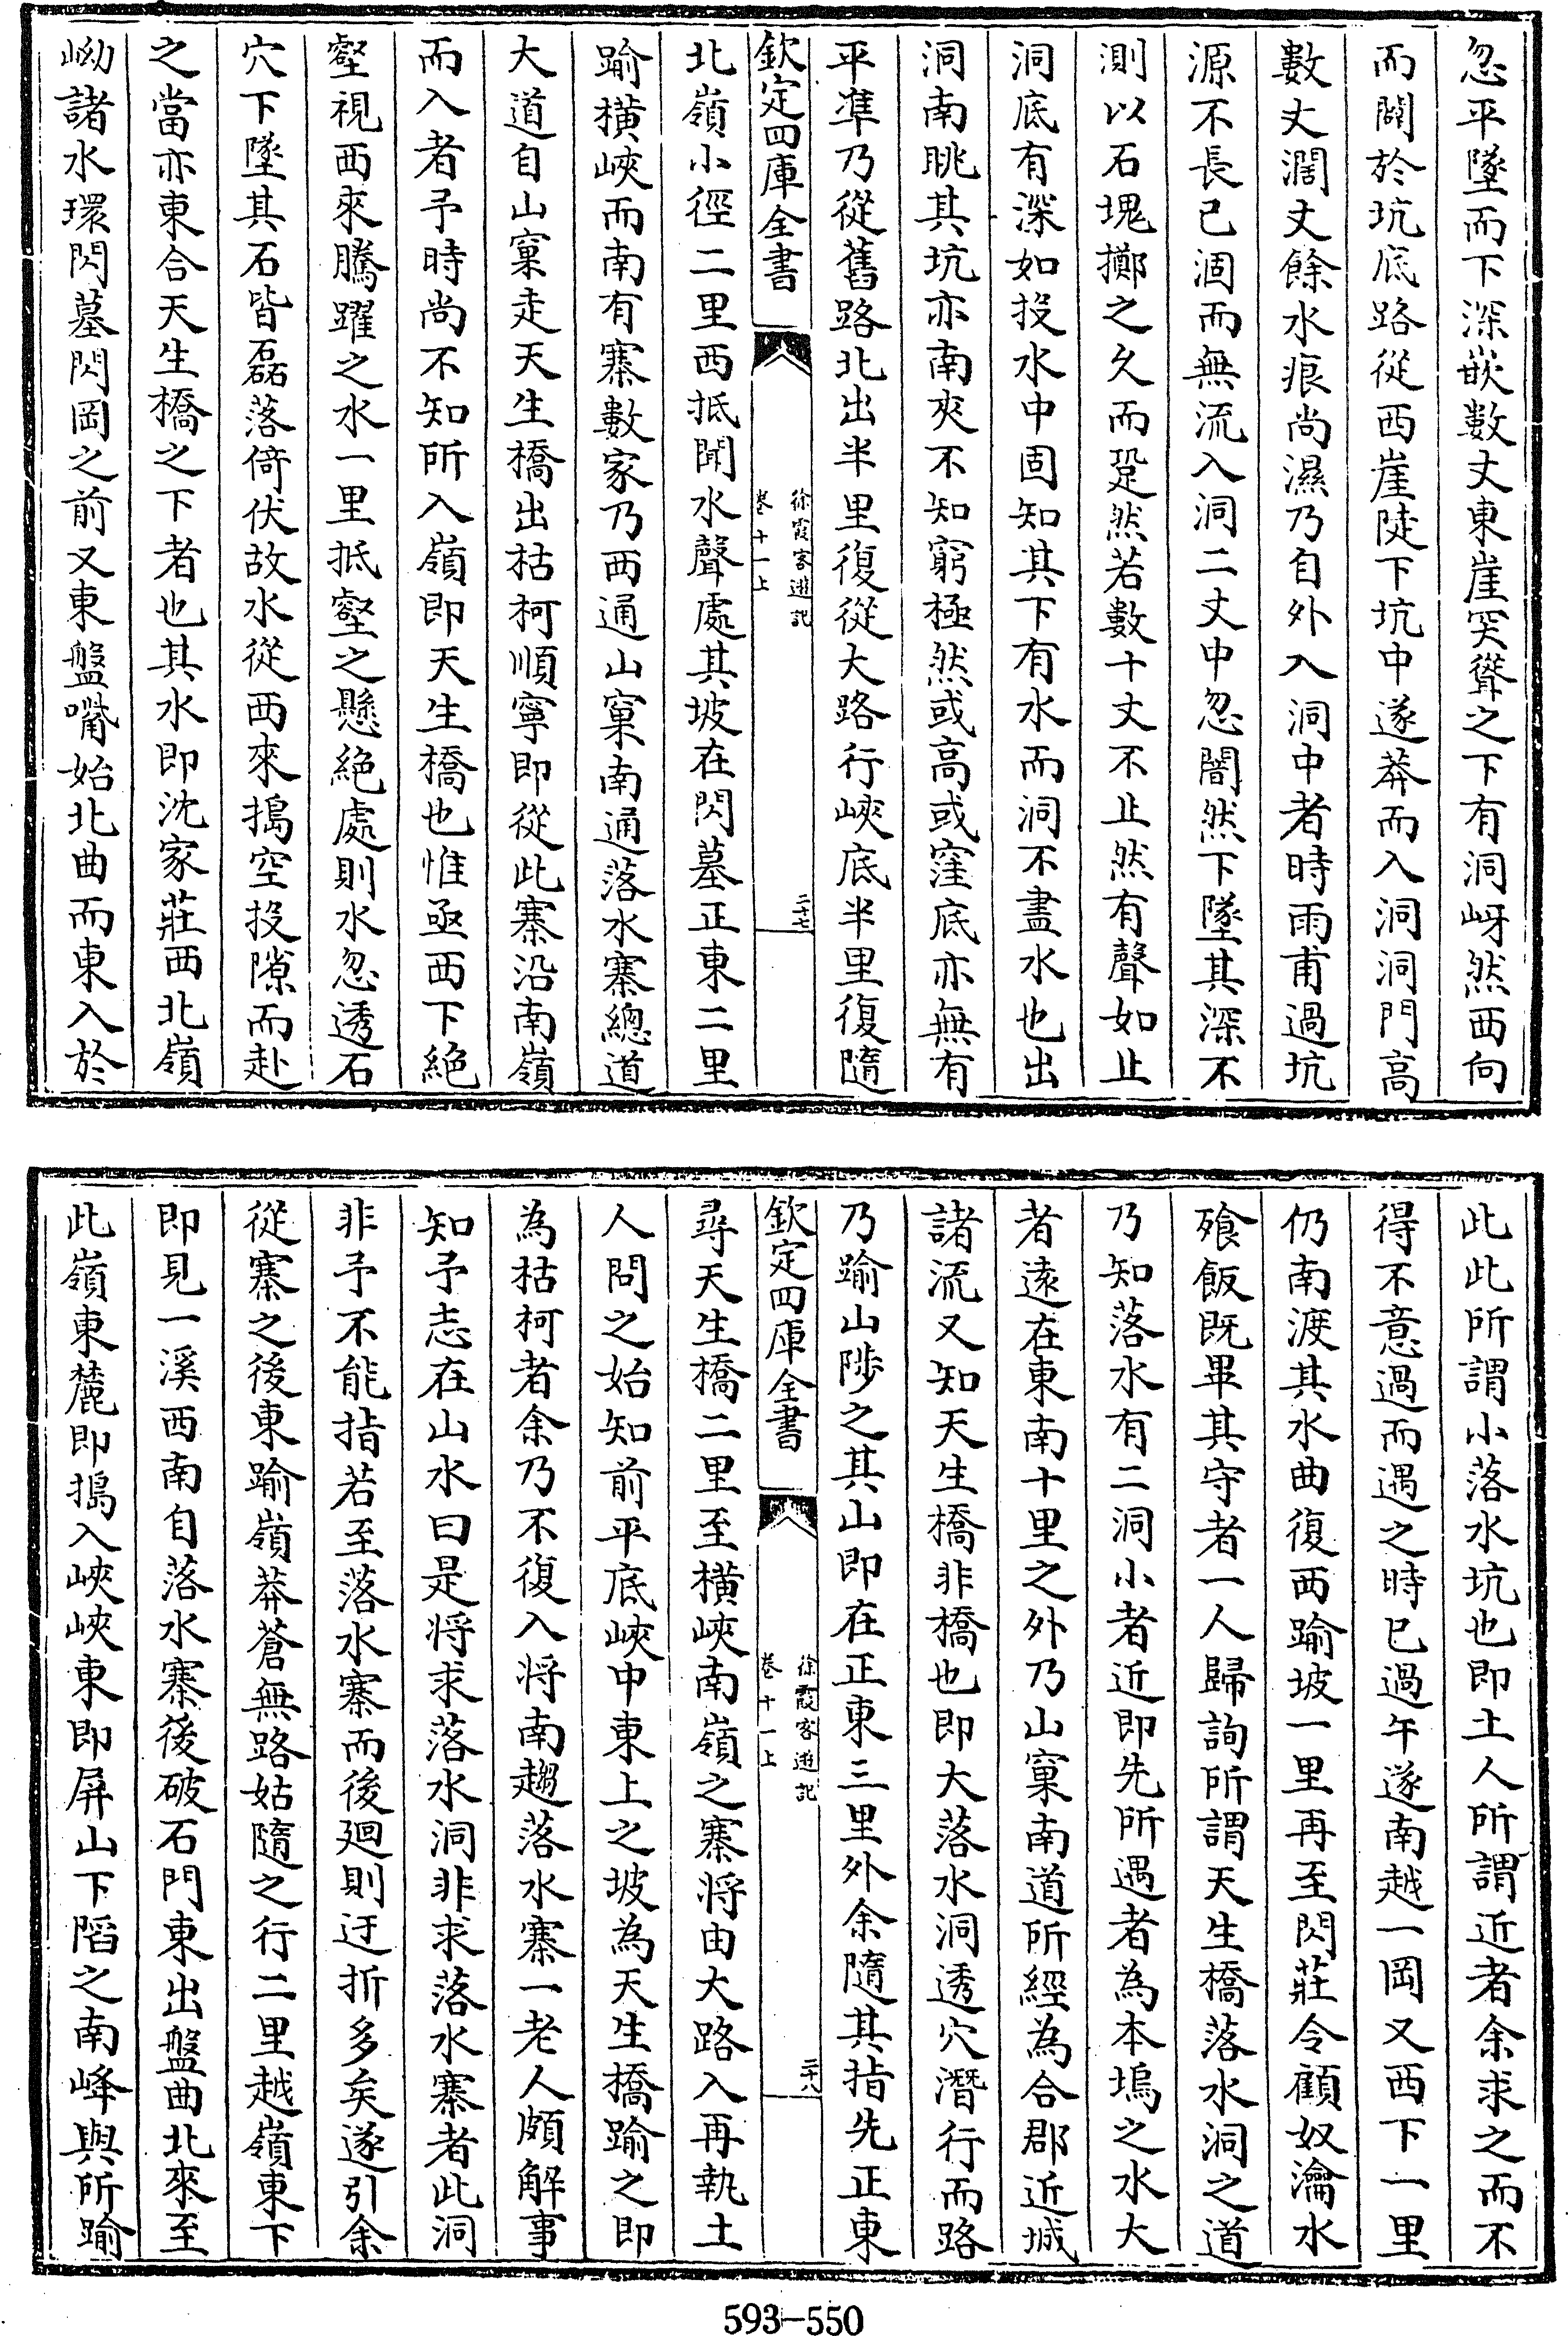 忽平墜而下深嵌數丈東崖突聳之下有洞岈然西向
而闢於坑底路從西崖陡下坑中遂莽而入洞洞門高
數丈濶丈餘水痕尚濕乃自外入洞中者時雨甫過坑
源不長已涸而無流入洞二丈中忽闇然下墜其深不
測以石塊擲之久而跫然若數十丈不止然有聲如止
洞底有深如投水中固知其下有水而洞不盡水也出
洞南眺其坑亦南夾不知窮極然或高或窪底亦無有
平準乃從舊路北出半里復從大路行峽底半里復隨
欽定四庫全書
徐霞客遊記
卷十一上
二十七
北嶺小徑二里西抵聞水聲處其坡在閃墓正東二里
踰横峽而南有寨數家乃西通山窠南通落水寨總道
大道自山窠走天生橋出枯柯順寧即從此寨沿南嶺
而入者予時尚不知所入嶺即天生橋也惟亟西下絶
壑視西來騰躍之水一里抵壑之懸絶處則水忽透石
穴下墜其石皆磊落倚伏故水從西來搗空投隙而赴
之當亦東合天生橋之下者也其水即沈家莊西北嶺
峡諸水環閃墓閃岡之前又東盤嘴始北曲而東入於
此此所謂小落水坑也即土人所謂近者余求之而不
得不意過而遇之時已過午遂南越一岡又西下一里
仍南渡其水曲復西踰坡一里再至閃莊令顧奴瀹水
飱飯既畢其守者一人歸詢所謂天生橋落水洞之道
乃知落水有二洞小者近即先所遇者為本塢之水大
者遠在東南十里之外乃山窠南道所經為合郡近城
諸流又知天生橋非橋也即大落水洞透穴潛行而路
乃踰山陟之其山即在正東三里外余隨其指先正東
欽定四庫全書
徐霞客遊記
卷十一上
二十八
尋天生橋二里至横峽南嶺之寨將由大路入再執土
人問之始知前平底峽中東上之坡為天生橋踰之即
為枯柯者余乃不復入將南趨落水寨一老人頗解事
知予志在山水曰是將求落水洞非求落水寨者此洞
非予不能指若至落水寨而後廻則迂折多矣遂引余
從寨之後東踰嶺莽蒼無路姑隨之行二里越嶺東下
即見一溪西南自落水寨後破石門東出盤曲北來至
此嶺東麓即搗入峽峽東即屏山下䧟之南峰與所踰
593-550